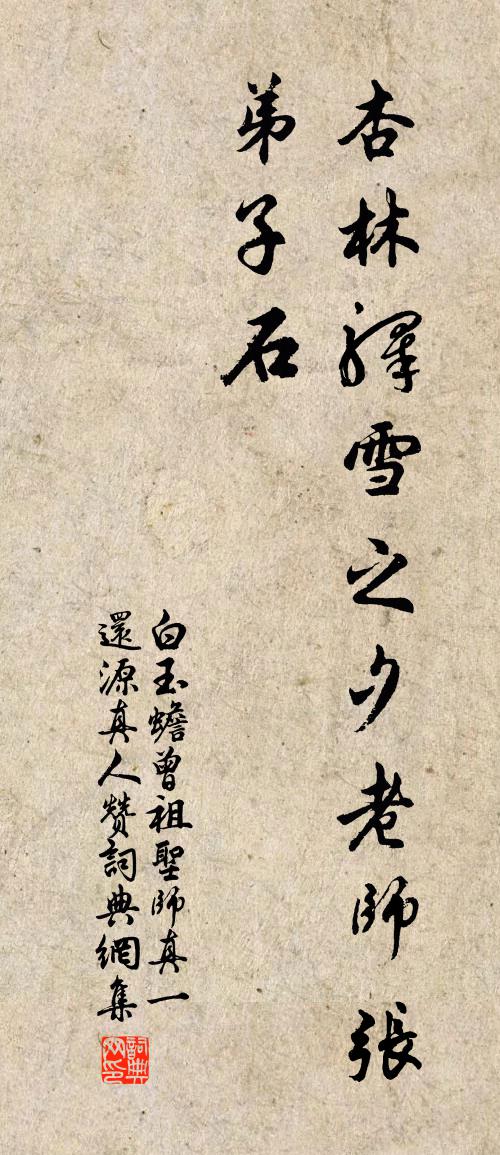 杏林驛雪之夕老師張
弟子石
白玉蟾曾祖聖師真一
還源真人贊詞典網集